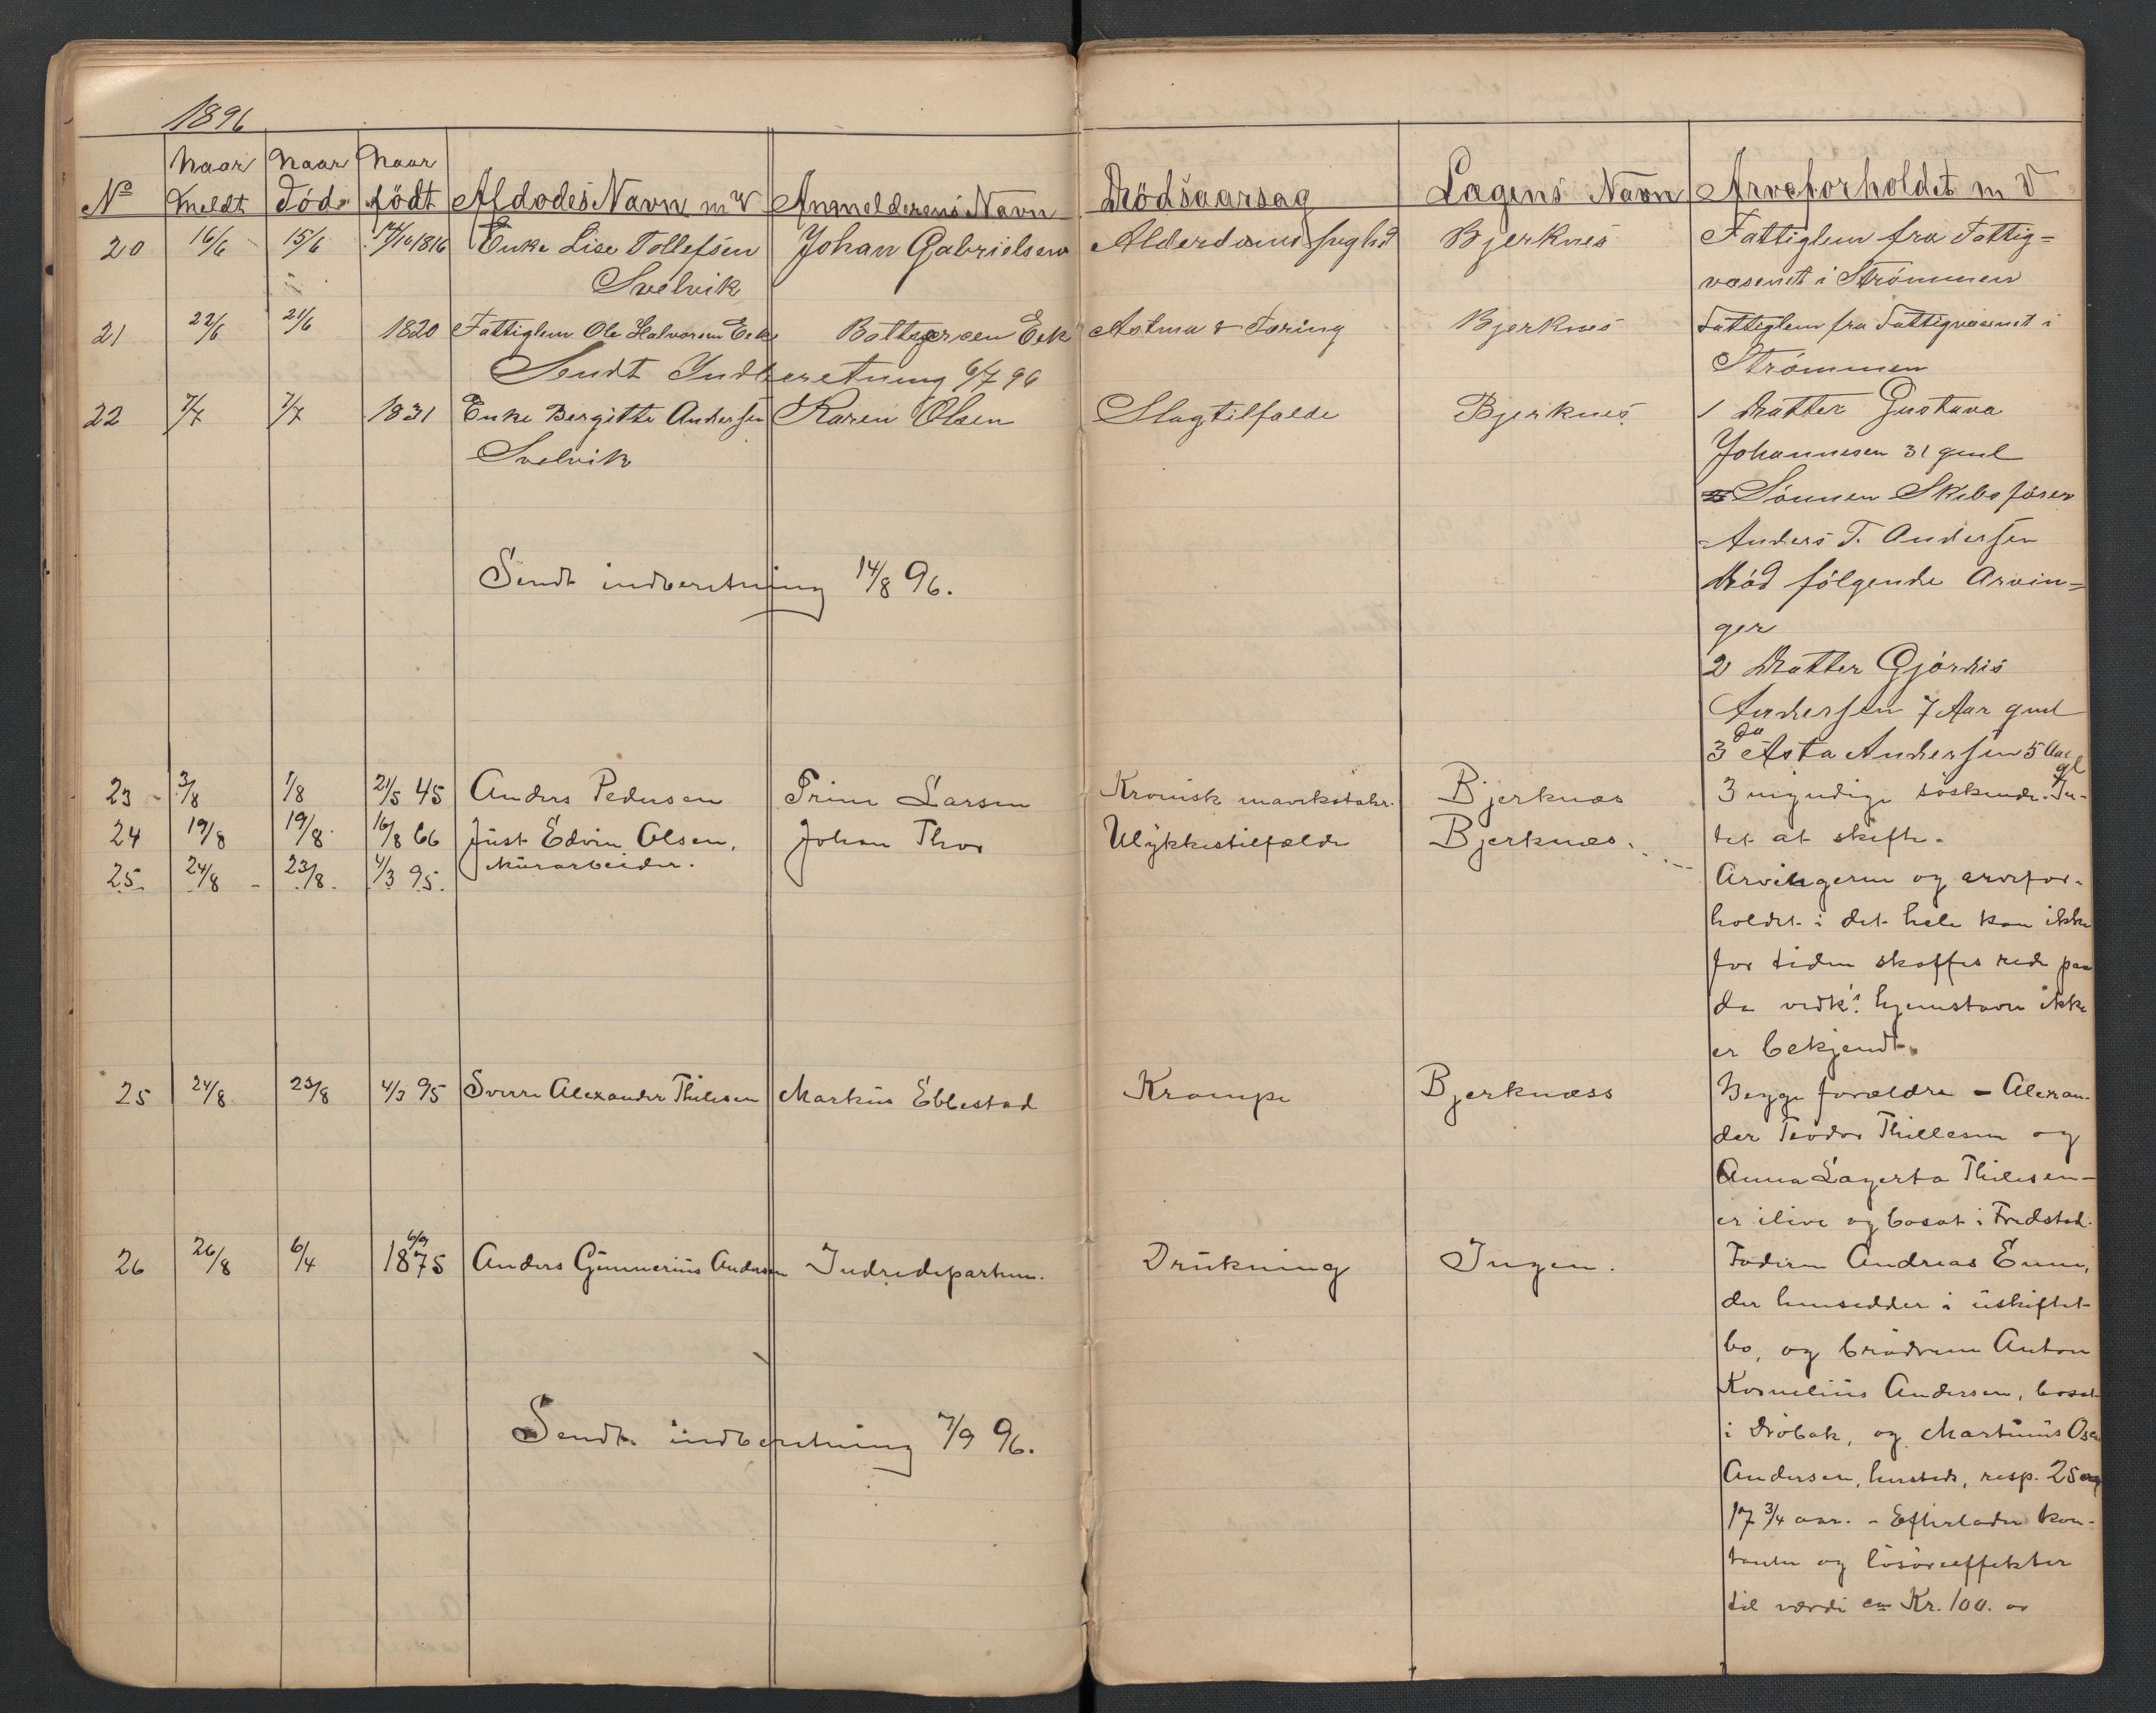 1896
No Naar meldt Naar Död Naar födt Afdödes Navn m V Anmelderens Navn Dödsaarsag Lægens Navn Arveforholdet m V
20 16/6 15/6 1816 Enke Lise Tollefsen Johan Gabrielsen Alderdoms Bjerknes Fattiglem fra Fattig=
Svelvik væsenet i Strømmen
21 22/6 21/6 1820 Fattiglem Ole Halvorsen Eek Eek Astma & Tæring Bjerknes Fattiglem fra Fattigvæsenet i
Sendt Indberetning 6/7 96 Strømmen
22 7/7 7/7 1831 Enke Bergitte Andersen Karen Olsen Slagtilfælde Bjerknes 1 Datter Gustava
Svelvik Johannesen 31 gml
Sönnen Skibsförer
Anders T. Andersen
Död fölgende Arvin=
Sendt indberetning 14/8 96.
ger
2 Datter Gjördis
Andersen 7 Aar gml
3 do Asta Andersen 5 Aar gl
23 3/8 1/8 21/5 45 Anders Pedersen Trine Larsen Kronisk mavekatahr. Bjerknæs 3 myndige söskende. In-
24 19/8 19/8 16/8 66 Just Edvin Olsen, Johan Thor Ulykkestilfælde Bjerknæs. tet at skifte.
25 24/8 23/8 4/3 95. Murarbeider. Arvingerne og arvefor-
holdet i det hele kan ikke
for tiden skaffes rede paa
da vedk's hjemstavn ikke
er bekjendt.
25 24/8 23/8 4/3 95 Sverre Alexander Thilesen Markus Ebbestad Krampe Bjerknæss Begge forældre - Alexan-
der Teodor Thillesen og
Anna Lagerta Thilesen-
er ilive og bosat i Fredstad.
26 26/8 6/4 6/9 1875 Anders Gunnerius Andersen Indredepartem. Drukning Ingen. Faderen Andreas Enni,
der hensidder i uskiftet
bo, og brødrene Anton
Kornelius Andersen, bosat
i Dröbak, og Martinius
Sendt indberetning 7/9 96.
Andersen, husteds, resp. 25 og
17 3/4 aar. - Efterlader kon-
tanter og lösöreeffekter
til værdi ca Kr. 100.